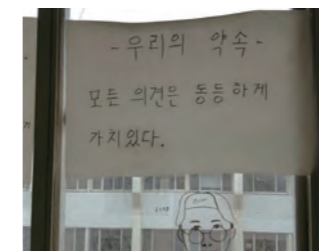 - 우리의 약속 -
모든 의견은 동등하게
가치있다.